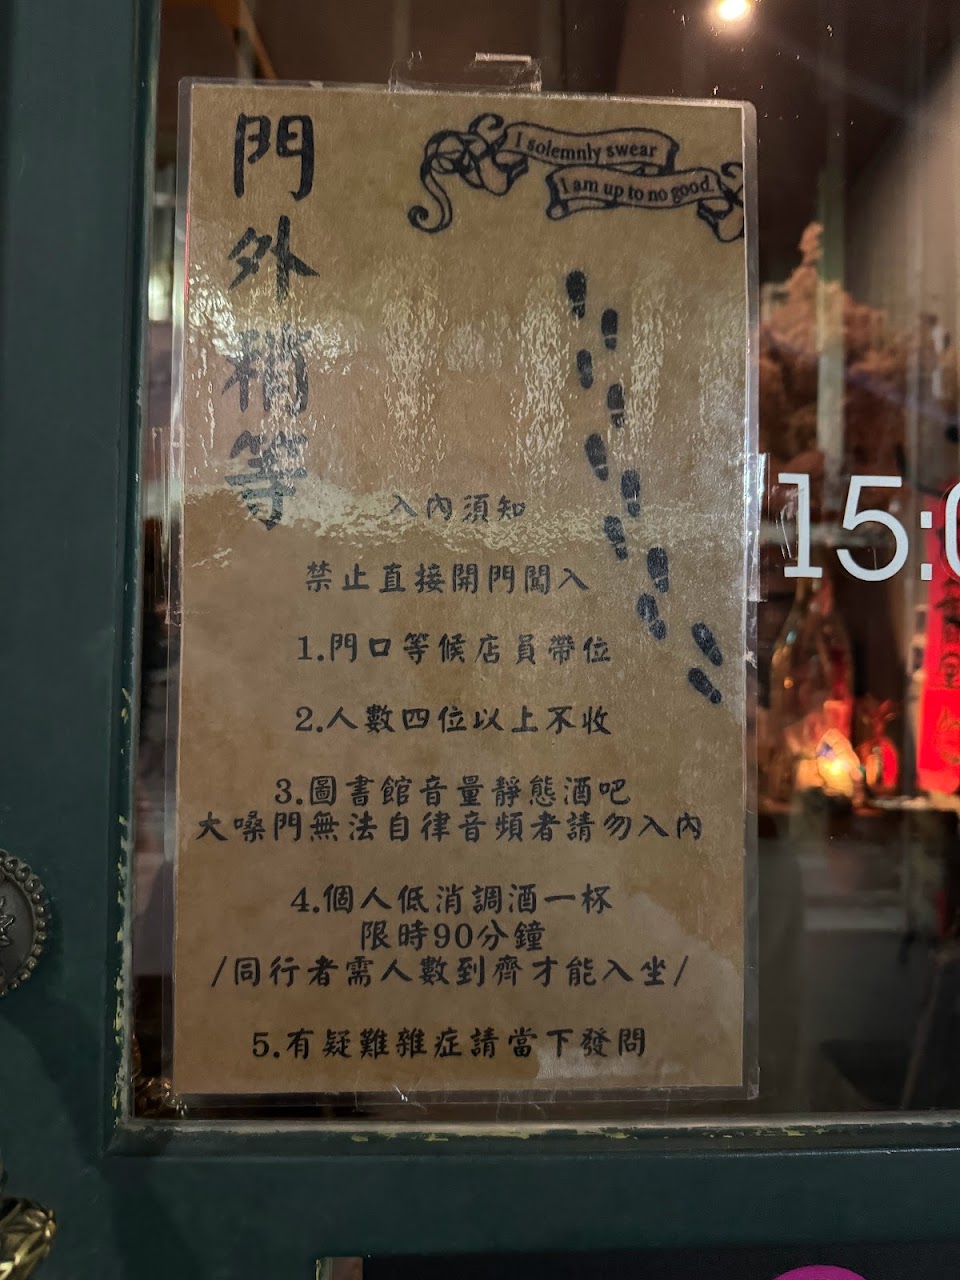 門外稍等
I solemnly swear
I am up to no good.
入內須知
禁止直接開門闖入
1.門口等候店員帶位
2.人數四位以上不收
3.圖書館音量靜態酒吧
大嗓門無法自律音頻者請勿入內
4.個人低消調酒一杯
限時90分鐘
/同行者需人數到齊才能入坐/
5.有疑難雜症請當下發問
15:0